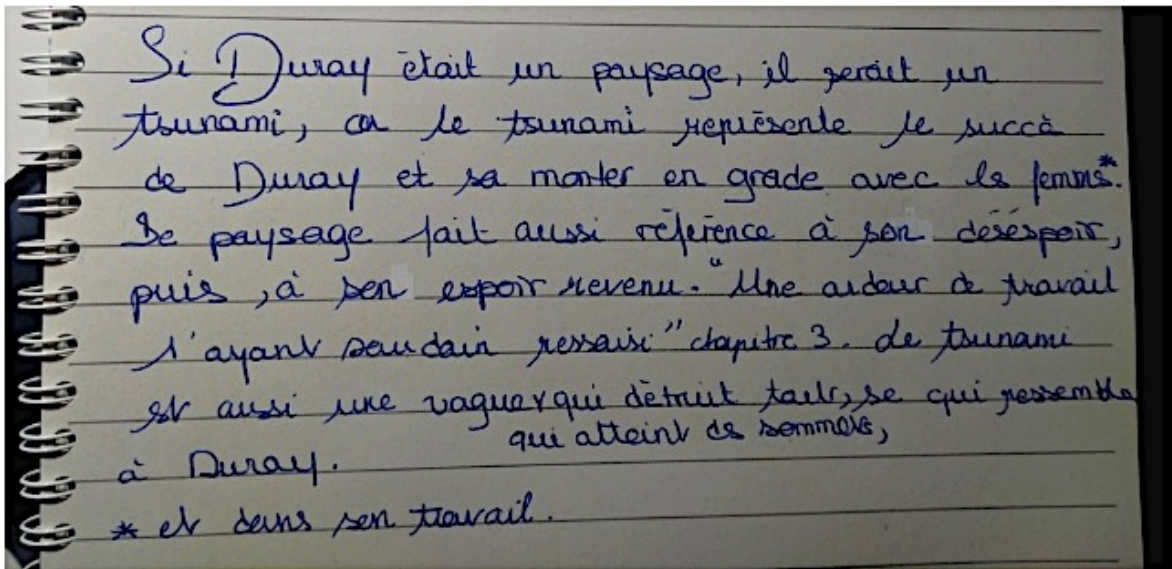 Si Duray était un paysage, il serait un
tsunami, car le tsunami représente le succè
de Duray et sa monter en grade avec les femms*.
Le paysage fait aussi référence à son désespoir,
puis, à son espoir revenu. "Une ardeur de travail
l'ayant soudain ressaisi" chapitre 3. Le tsunami
est aussi une vague qui détruit tout, se qui ressemble
qui atteint des sommets,
à Duray.
* et dans son travail.